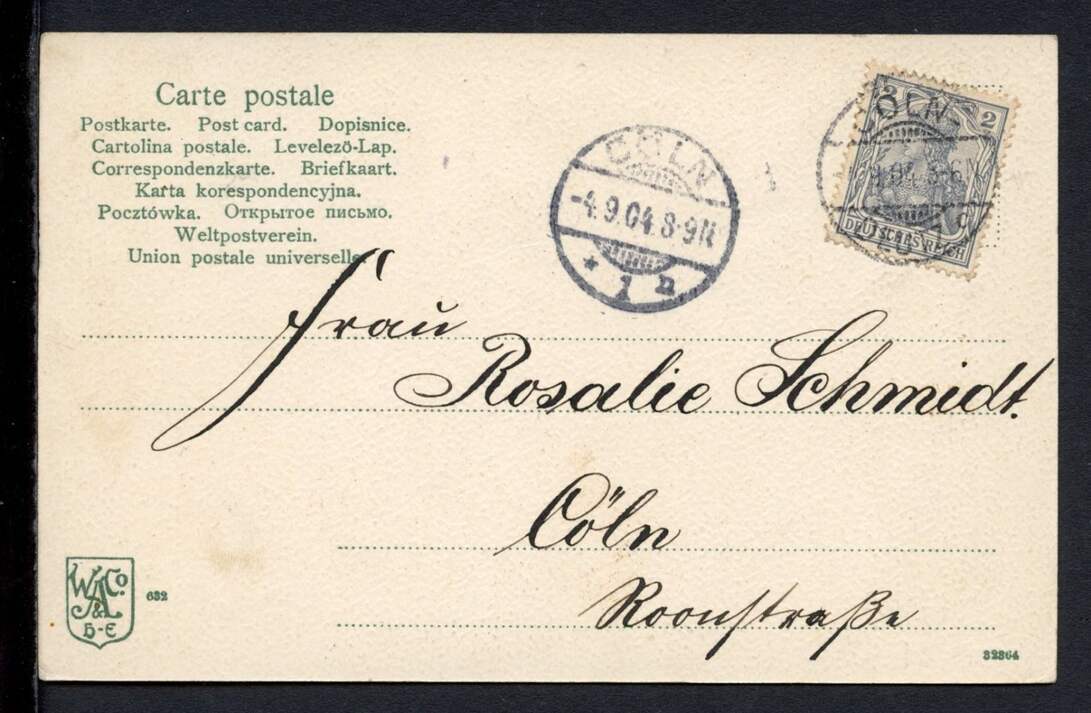 Carte postale
Postkarte. Post card. Dopisnice.
Cartolina postale. Levelező-Lap.
Correspondenzkarte. Briefkaart.
Karta korespondencyjna.
Pocztówka. Открытое письмо.
Weltpostverein.
Union postale universelle.
CÖLN
-4.9.04.8-9N
* 1 n
CÖLN
2 2
DEUTSCHES REICH
Frau
Rosalie Schmidt.
Cöln
Roonstraße
W. A & Co
H-E
632
32364